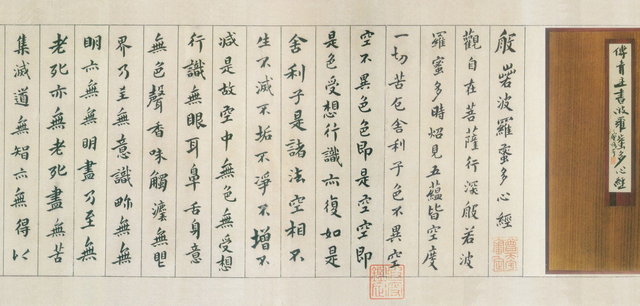 傅青主書波羅蜜多心經
般若波羅蜜多心經
觀自在菩薩行深般若波
羅蜜多時炤見五蘊皆空度
一切苦厄舍利子色不異空
空不異色色即是空空即
是色受想行識亦復如是
舍利子是諸法空相不
生不滅不垢不淨不增不
減是故空中無色無受想
行識無眼耳鼻舌身意
無色聲香味觸灋無眼
界乃至無意識畍無無
明亦無無明盡乃至無
老死亦無老死盡無苦
集滅道無智亦無得以